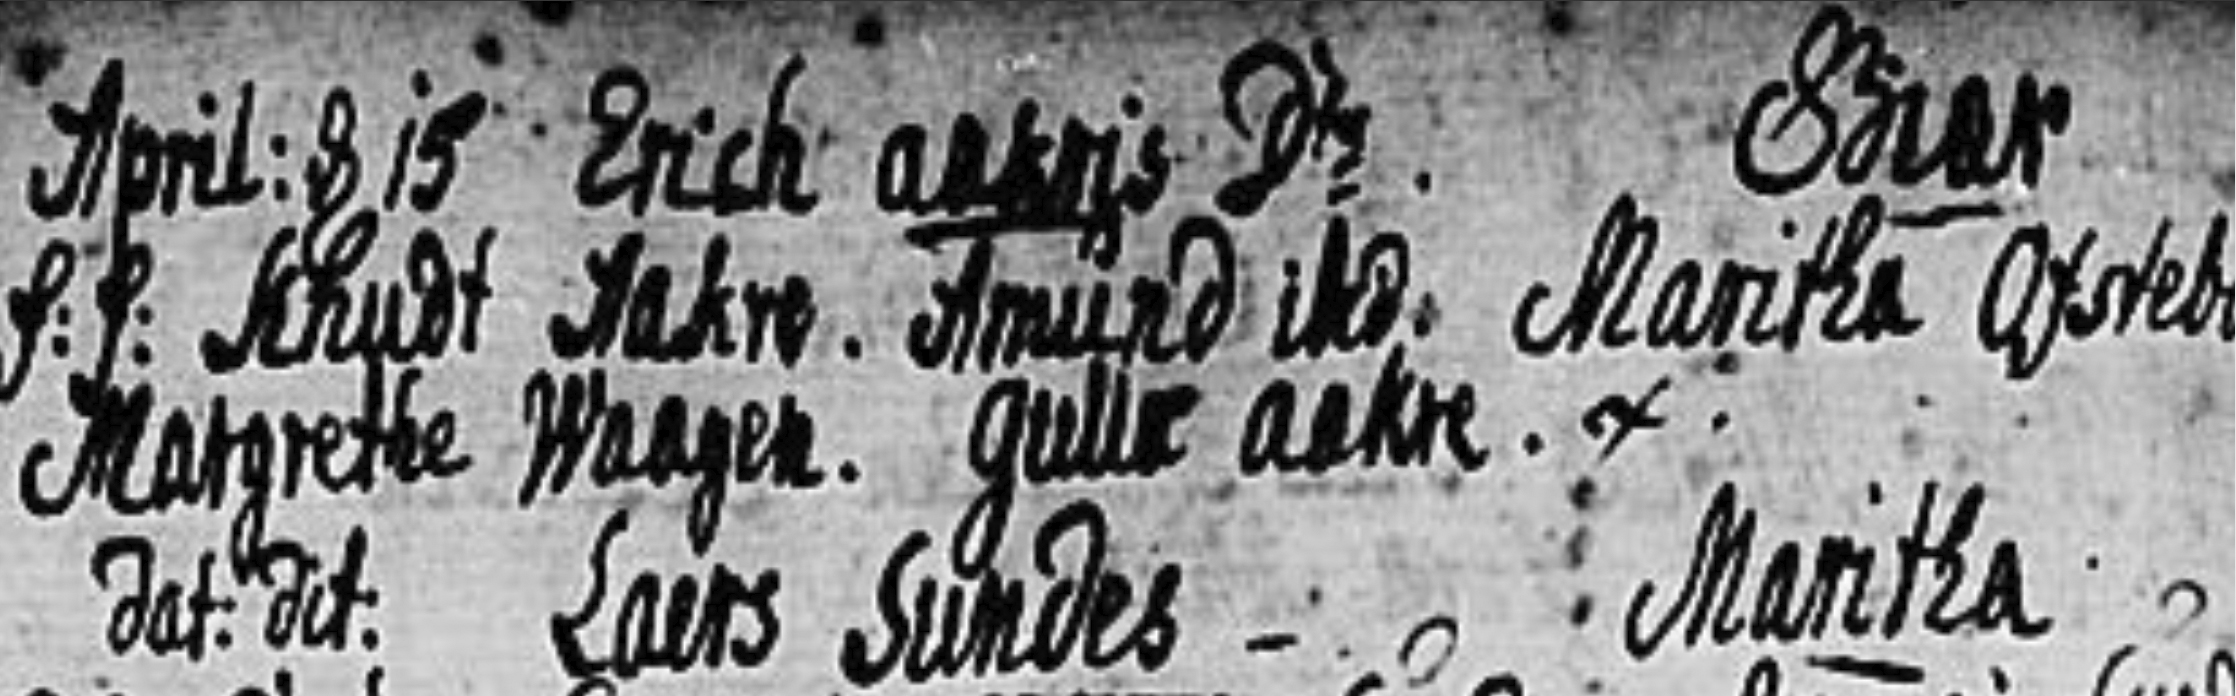 April: d 15 Erich aakrijs Dr. Gziar
f: f: Knudt Aakre. Amund ibd: Maritha Qfsteb
Margrethe Waagen. Gullr aakre.
dat: dit: Laers Sundes - Maritha